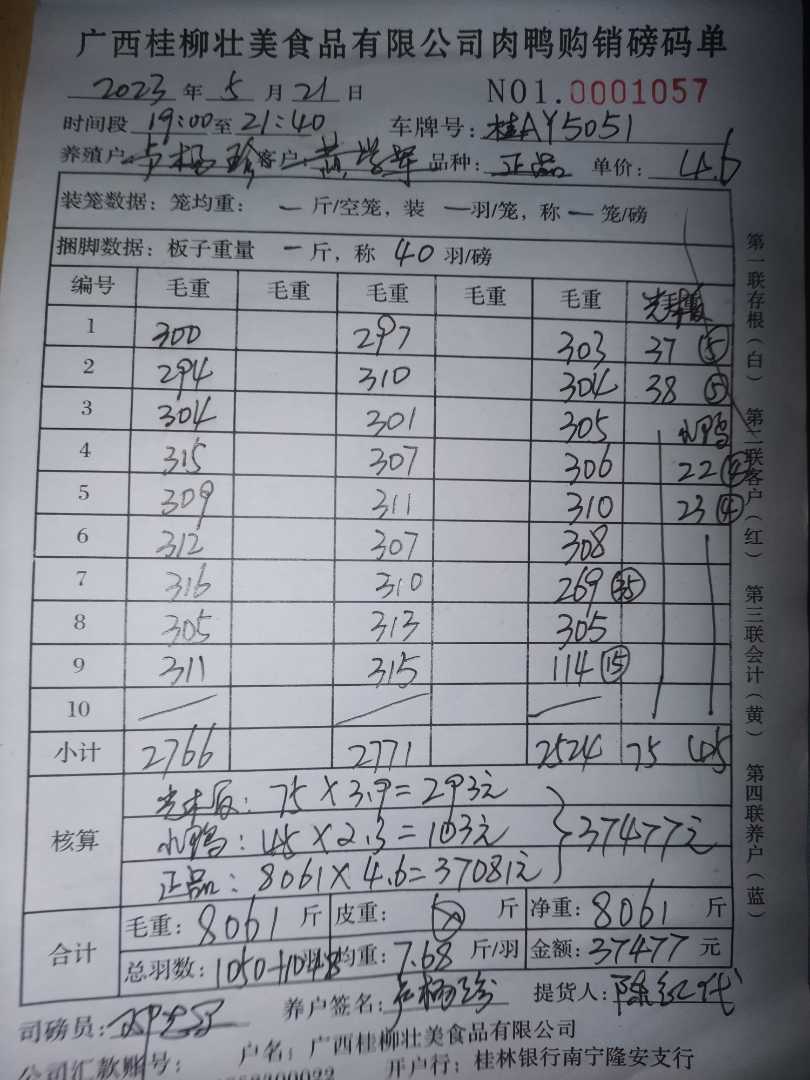 广西桂柳壮美食品有限公司肉鸭购销磅码单
2023 年 5 月 21 日 NO1.0001057
时间段 19:00 至 21:40 车牌号: 桂AY5051
养殖户 卢杨珍 客户: 品种: 正品 单价: 4.6
装笼数据: 笼均重: 一 斤/空笼, 装 一 羽/笼, 称 一 笼/磅
捆脚数据: 板子重量 一 斤, 称 40 羽/磅
编号 毛重 毛重 毛重 毛重 毛重
1 300 297 303 37 ⑤
2 294 310 304 38 ⑤
3 304 301 305 小鸭
4 315 307 306 22 ④
5 309 311 310 23 ④
6 312 307 308
7 316 310 269 ㉟
8 305 313 305
9 311 315 114 ⑮
10
小计 2766 2771 2524 75 45
核算
75 × 3.9 = 293元
小鸭: 45 × 2.3 = 103元 } 37477元
正品: 8061 × 4.6 = 37081元
合计
毛重: 8061 斤 皮重: 斤 净重: 8061 斤
总羽数: 1050 1048 羽 均重: 7.68 斤/羽 金额: 37477 元
养户签名: 卢杨珍 提货人: 陈红代
司磅员:
公司汇款账号: 户名: 广西桂柳壮美食品有限公司
开户行: 桂林银行南宁隆安支行
第一联存根(白) 第二联客户(红) 第三联会计(黄) 第四联养户(蓝)